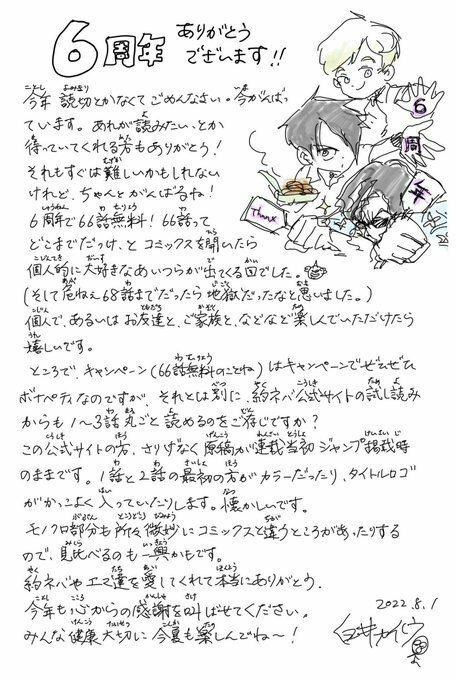 6周年 ありがとう
ございます!!
今年 読切とかなくてごめんなさい。今がんばっ
ています。あれが読みたい、とか
待っていてくれる方もありがとう!
それもすぐは難しいかもしれない
けれど、ちゃんとがんばるね!
6周年で66話無料! 66話って
どこまでだっけ、と コミックスを開いたら
個人的に大好きなあいつらが出てくる回でした。
(そして危ねぇ68話までだったら地獄だったなと思いました。)
個人で、あるいは お友達と、ご家族と、などなど楽しんでいただけたら
嬉しいです。
ところで、キャンペーン(66話無料のことね)はキャンペーンでぜひぜひ
ボナペティなのですが、それとは別に、約ネバ公式サイトの試し読み
からも1〜3話丸ごと読めるのをご存じですか?
この公式サイトの方、さりげなく原稿が連載当初ジャンプ掲載時
のままです。1話と2話の最初の方がカラーだったり、タイトルロゴ
がかっこよく入っていたりします。懐かしいです。
モノクロ部分も所々微妙にコミックスと違うところがあったりする
ので、見比べるのも一興かもです。
約ネバやエマ達を愛してくれて本当にありがとう。
今年も心からの感謝を叫ばせてください。
みんな健康大切に 今夏も楽しんでね〜!
2022.8.1
白井カイウ
6
周
年
Thanx